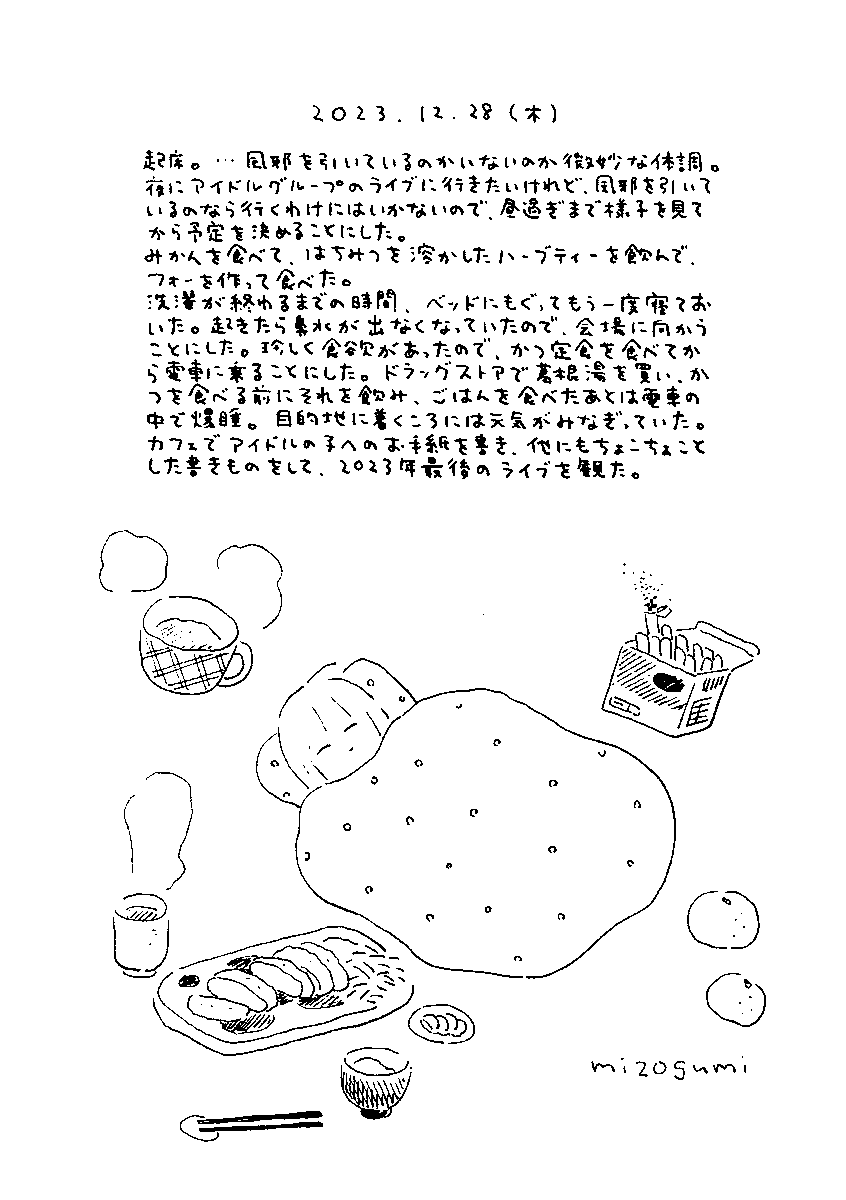 2023.12.28(木)
起床。…風邪を引いているのかいないのか微妙な体調。
夜にアイドルグループのライブに行きたいけれど、風邪を引いて
いるのなら行くわけにはいかないので、昼過ぎまで様子を見て
から予定を決めることにした。
みかんを食べて、はちみつを溶かしたハーブティーを飲んで、
フォーを作って食べた。
洗濯が終わるまでの時間、ベッドにもぐってもう一度寝てお
いた。起きたら鼻水が出なくなっていたので、会場に向かう
ことにした。珍しく食欲があったので、かつ定食を食べてか
ら電車に乗ることにした。ドラッグストアで葛根湯を買い、か
つを食べる前にそれを飲み、ごはんを食べたあとは電車の
中で爆睡。目的地に着くころには元気がみなぎっていた。
カフェでアイドルの子へのお手紙を書き、他にもちょこちょこと
した書きものをして、2023年最後のライブを観た。
mizogumi